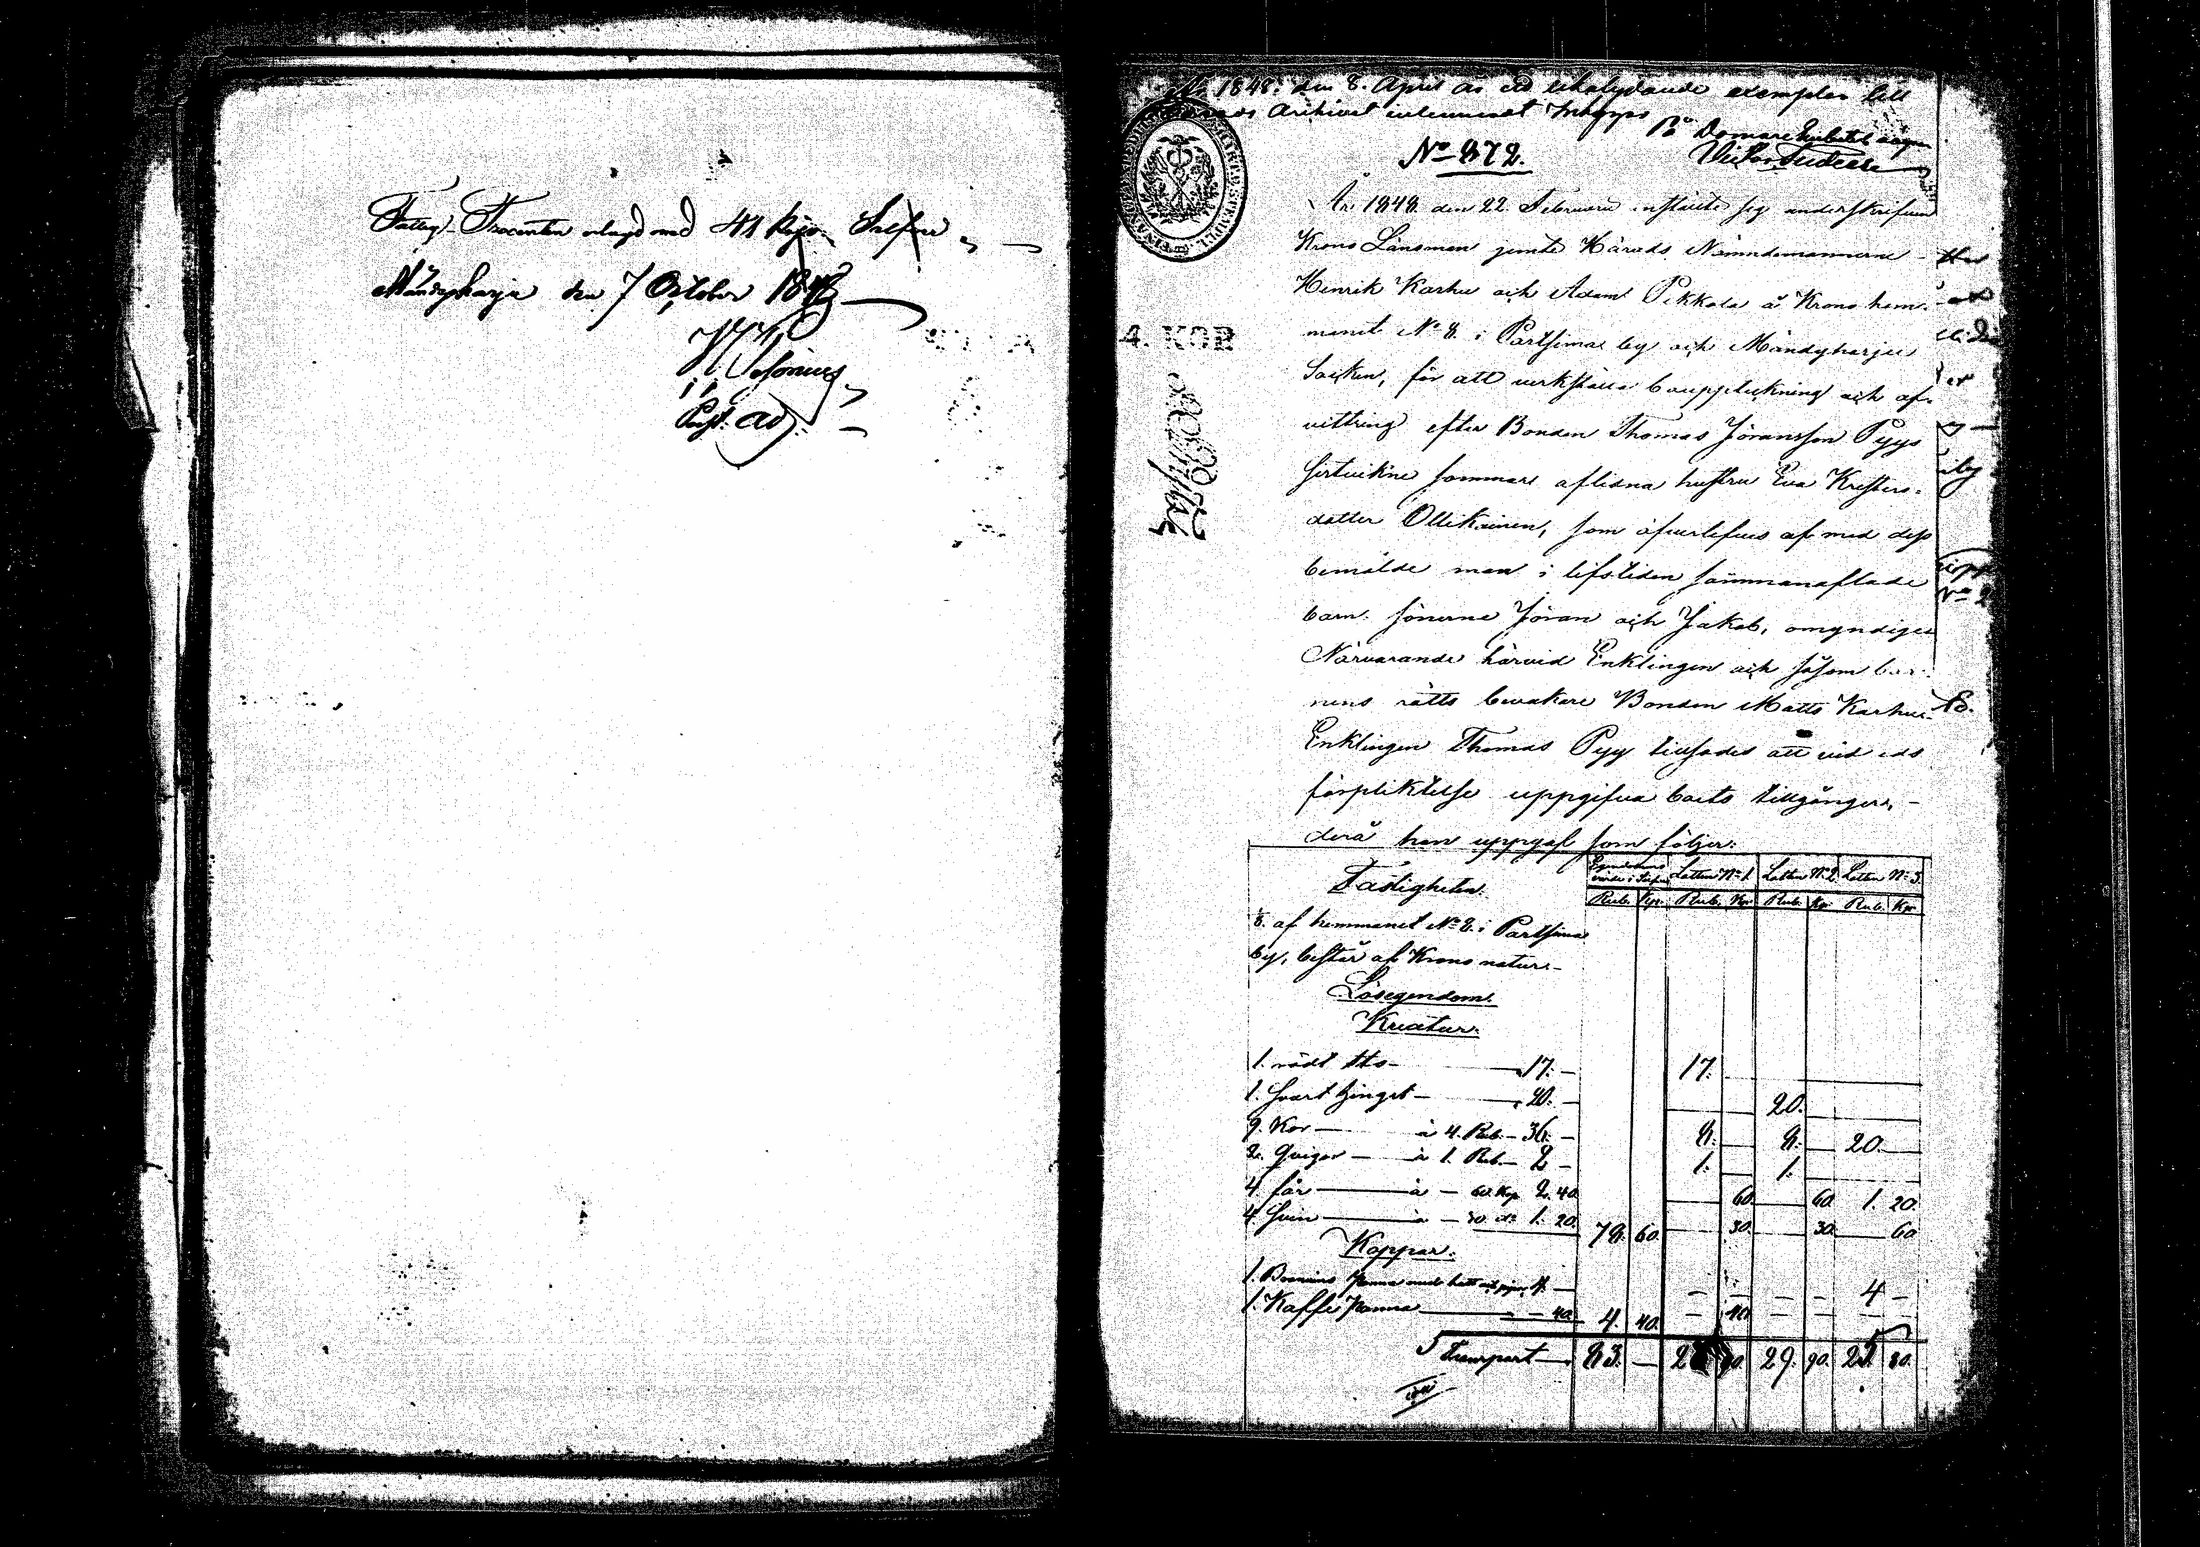 Fattig Procenten erlagd med 41 kop. Silfver
Mändyharju den 7 October
Past. adj.
1848. den 8. April är ett likalydande exemplar till
Archivet inlemnadt
På Domare Embetets vägnar
No 872.
År 1848. den 22. Februarii instälte sig underskrifven
Krono Länsman jemte Härads Nämndemännerne
Henrik Karhu och Adam Pekkola å Krono hem-
manet No 8. i Partsimaa by och Mändyharju
Socken, för att verkställa bouppteckning och af-
vittring efter Bonden Thomas Jöransson Pyys
sistvikne sommars aflidna hustru Eva Kristers-
dotter Ollikainen, som öfverlefves af med dess
bemälde man i lifstiden sammanaflade
barn: sönerne Jöran och Jakob, omyndige
Närvarande härvid Enklingen och såsom bar-
nens rätts bevakare Bonden Matts Karhu
Enklingen Thomas Pyy tillsades att vid eds
förpliktelse uppgifva boets tillgångar,
derå han uppgaf som följer:
Fastigheten. Egendomens värde i Silfver Lotten No 1. Lotten No 2. Lotten No 3.
Rub. Kop. Rub. Kop. Rub. Kop. Rub. Kop.
af hemmanet No 8. i Partsimaa
by, består af Krono natur.
Lösegendom.
Kreatur.
1. rödt Sto 17. 17.
1. svart hingst 20. 20.
9. Kor à 4. Rub. 36. 8. 8. 20.
2. Qvigor à 1. Rub. 2 1. 1.
4. får à 60 Kop. 2. 40. 60 60 1. 20.
4. svin à 30 do 1. 20. 78. 60. 30. 30. 60
Koppar.
1. Brännvins panna med hatt och pipor 4. 4
1. Kaffe panna 40. 4. 40. 40.
Transport 83. 29. 90. 25. 80.